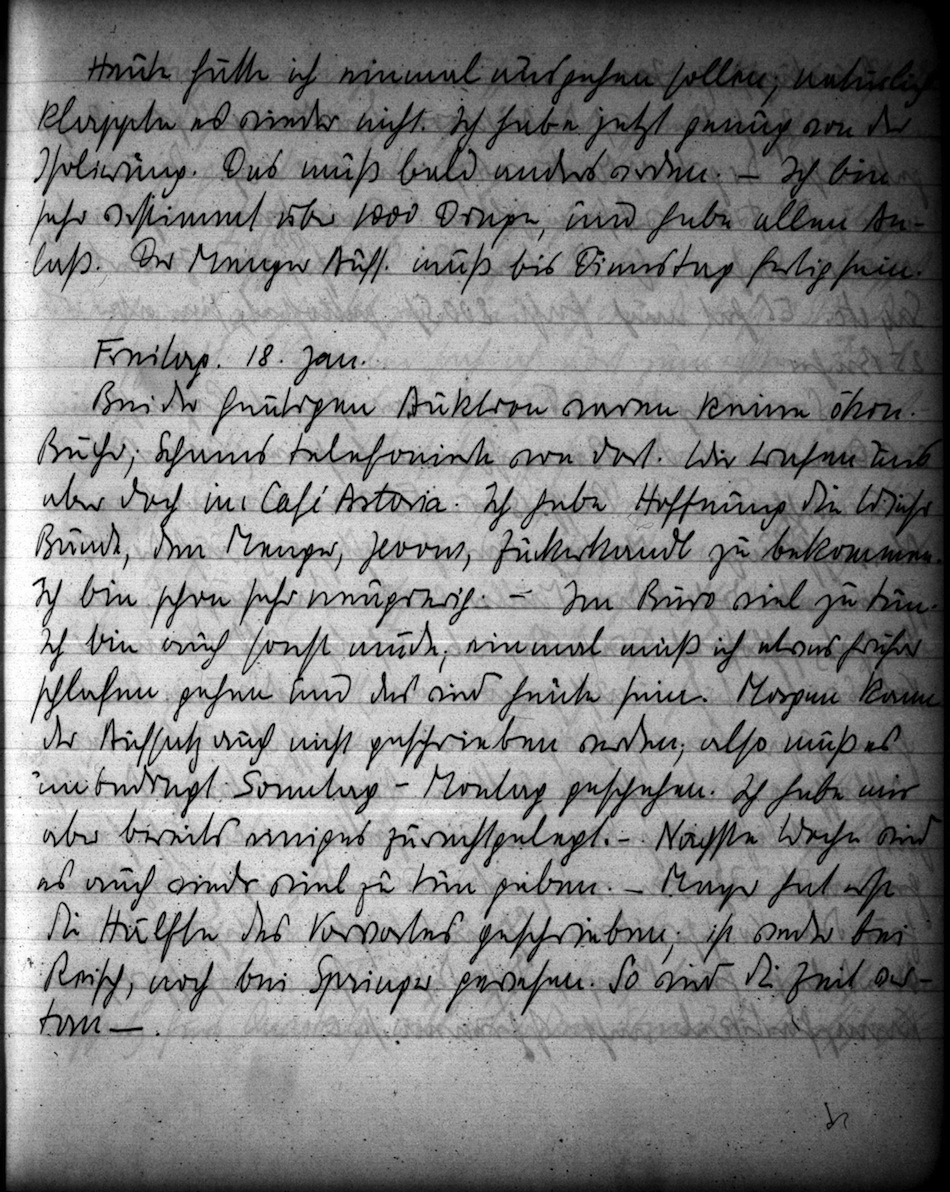 Heute hätte ich einmal ausgehen sollen, natürlich
klappte es wieder nicht. Ich habe jetzt genug von der
Isolierung. Das muß bald anders werden. – Ich bin
sehr verstimmt über 1000 Dinge, und habe allen An-
laß. Der Menger Aufs. muß bis Dienstag fertig sein.
Freitag. 18. Jan.
Bei der heutigen Auktion waren keine ökon.
Bücher, Schams telefonierte von dort. Wir trafen uns
aber doch im Café Astoria. Ich habe Hoffnung die Wieser
Bände, den Menger, Jevons, Zuckerkandl zu bekommen.
Ich bin schon sehr neugierig. – Im Büro viel zu tun.
Ich bin auch sonst müde, einmal muß ich etwas früher
schlafen gehen und das wird heute sein. Morgen kann
der Aufsatz auch nicht geschrieben werden, also muß es
unbedingt Sonntag – Montag geschehen. Ich habe mir
aber bereits einiges zurechtgelegt. – Nächste Woche wird
es auch wieder viel zu tun geben. – Mayer hat erst
die Hälfte des Vorwortes geschrieben, ist weder bei
Reisch, noch bei Springer gewesen. So wird die Zeit ver-
tan — .